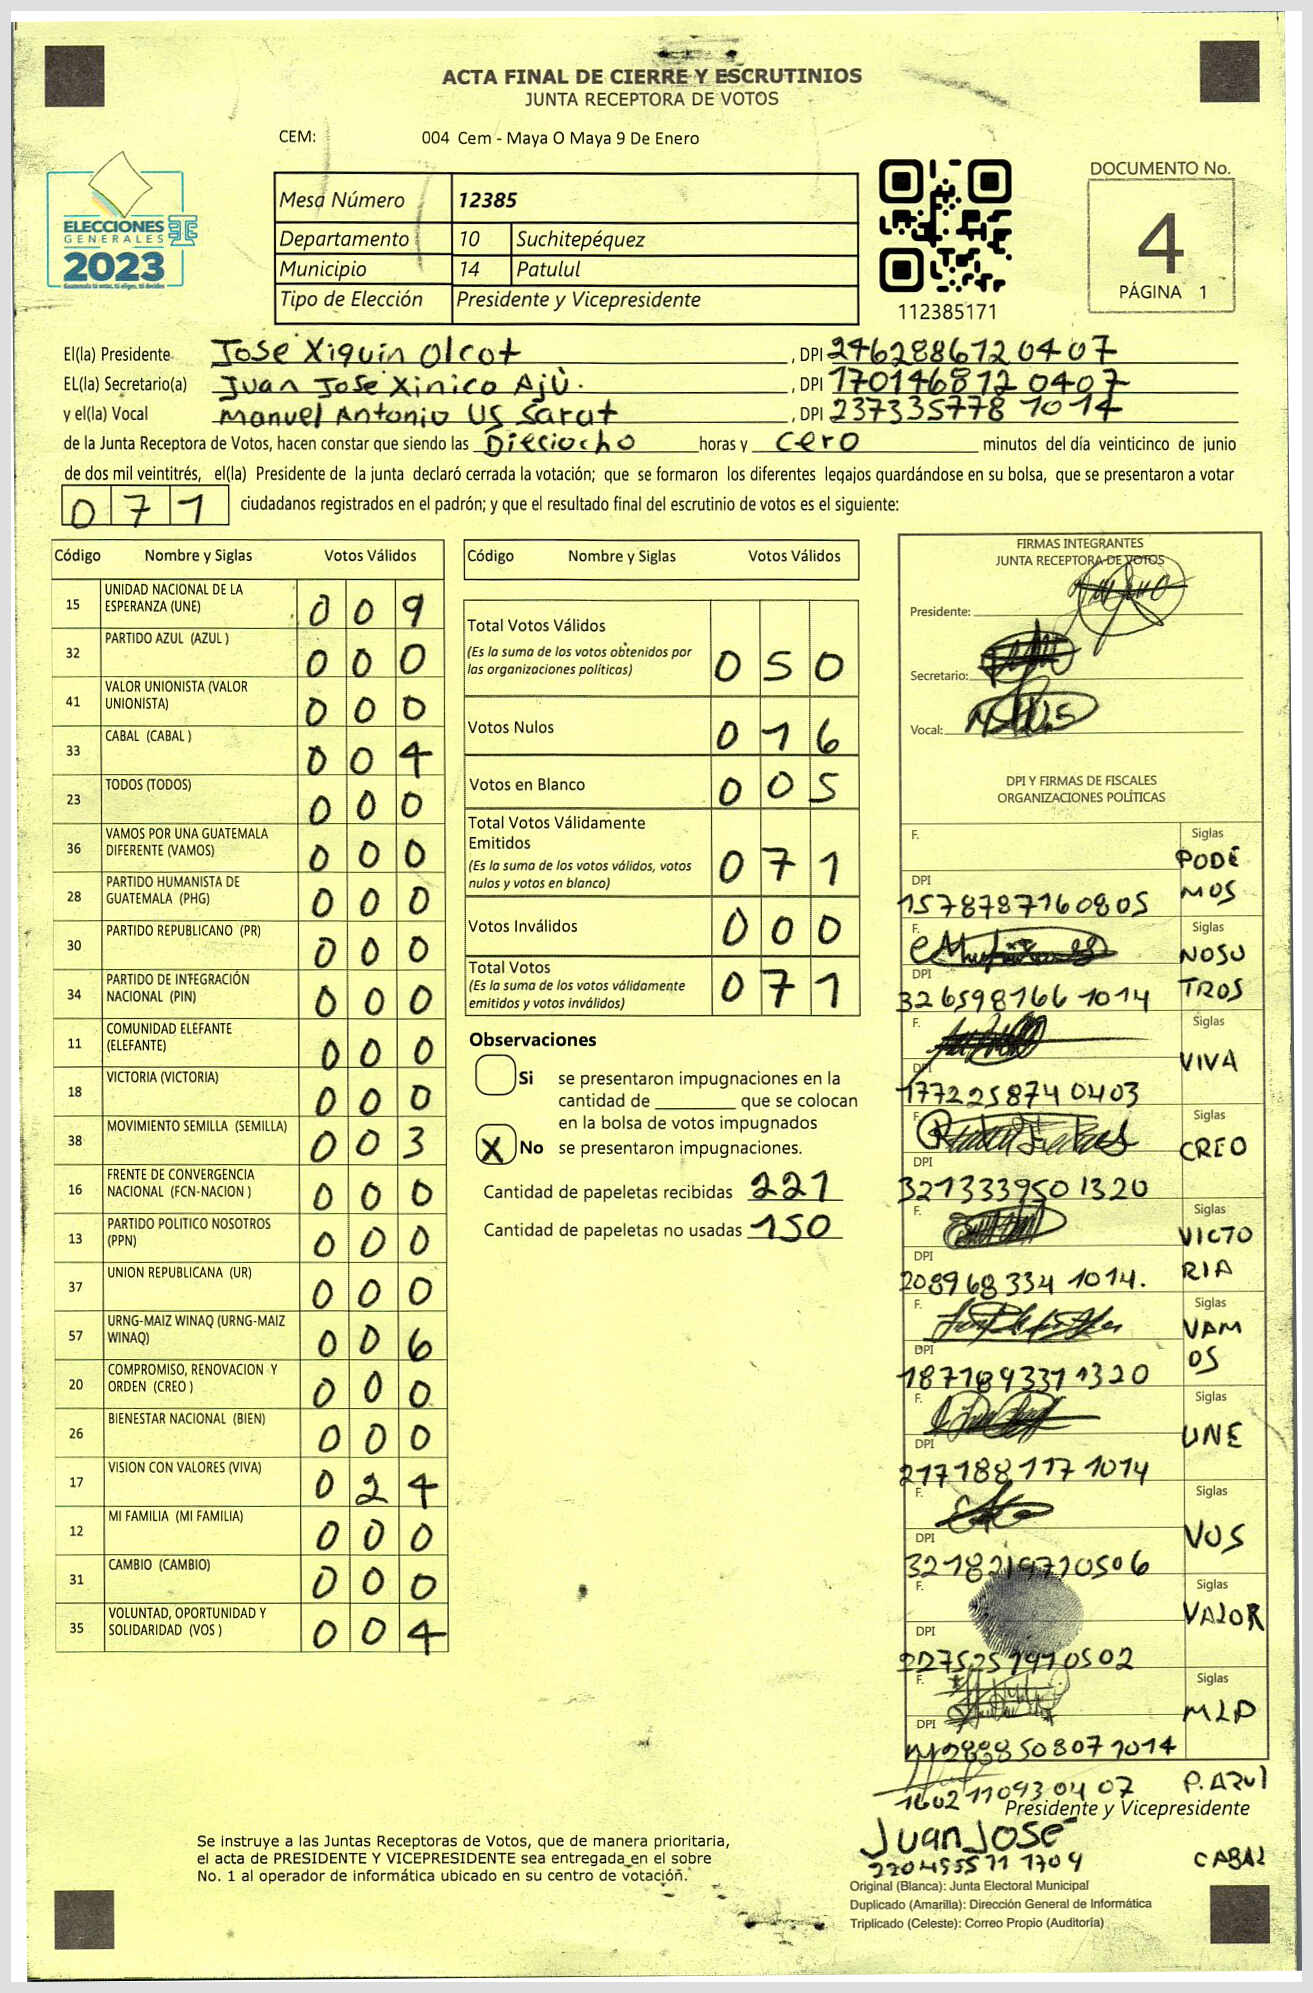 ACTA FINAL DE CIERRE Y ESCRUTINIOS
JUNTA RECEPTORA DE VOTOS
CEM: 004 Cem - Maya O Maya 9 De Enero
ELECCIONES
GENERALES
2023
Guatemala tú votas, tú eliges, tú decides
Mesa Número 12385
Departamento 10 Suchitepéquez
Municipio 14 Patulul
Tipo de Elección Presidente y Vicepresidente
112385171
DOCUMENTO No.
4
PÁGINA 1
El(la) Presidente Jose Xiquin Olcot, DPI 2462886120407
EL(la) Secretario(a) Juan Jose Xinico Ajù., DPI 1701468120407
y el(la) Vocal Manuel Antonio US Sarat, DPI 2373357781014
de la Junta Receptora de Votos, hacen constar que siendo las Dieciocho horas y cero minutos del día veinticinco de junio
de dos mil veintitrés, el(la) Presidente de la junta declaró cerrada la votación; que se formaron los diferentes legajos guardándose en su bolsa, que se presentaron a votar
071 ciudadanos registrados en el padrón; y que el resultado final del escrutinio de votos es el siguiente:
Código Nombre y Siglas Votos Válidos
15 UNIDAD NACIONAL DE LA ESPERANZA (UNE) 009
32 PARTIDO AZUL (AZUL ) 000
41 VALOR UNIONISTA (VALOR UNIONISTA) 000
33 CABAL (CABAL ) 004
23 TODOS (TODOS) 000
36 VAMOS POR UNA GUATEMALA DIFERENTE (VAMOS) 000
28 PARTIDO HUMANISTA DE GUATEMALA (PHG) 000
30 PARTIDO REPUBLICANO (PR) 000
34 PARTIDO DE INTEGRACIÓN NACIONAL (PIN) 000
11 COMUNIDAD ELEFANTE (ELEFANTE) 000
18 VICTORIA (VICTORIA) 000
38 MOVIMIENTO SEMILLA (SEMILLA) 003
16 FRENTE DE CONVERGENCIA NACIONAL (FCN-NACION ) 000
13 PARTIDO POLITICO NOSOTROS (PPN) 000
37 UNION REPUBLICANA (UR) 000
57 URNG-MAIZ WINAQ (URNG-MAIZ WINAQ) 006
20 COMPROMISO, RENOVACION Y ORDEN (CREO ) 000
26 BIENESTAR NACIONAL (BIEN) 000
17 VISION CON VALORES (VIVA) 024
12 MI FAMILIA (MI FAMILIA) 000
31 CAMBIO (CAMBIO) 000
35 VOLUNTAD, OPORTUNIDAD Y SOLIDARIDAD (VOS ) 004
Código Nombre y Siglas Votos Válidos
Total Votos Válidos 050
(Es la suma de los votos obtenidos por las organizaciones políticas)
Votos Nulos 016
Votos en Blanco 005
Total Votos Válidamente Emitidos 071
(Es la suma de los votos válidos, votos nulos y votos en blanco)
Votos Inválidos 000
Total Votos 071
(Es la suma de los votos válidamente emitidos y votos inválidos)
Observaciones
Si se presentaron impugnaciones en la
cantidad de ________ que se colocan
en la bolsa de votos impugnados
X No se presentaron impugnaciones.
Cantidad de papeletas recibidas 221
Cantidad de papeletas no usadas 150
FIRMAS INTEGRANTES
JUNTA RECEPTORA DE VOTOS
Presidente:
Secretario:
Vocal:
DPI Y FIRMAS DE FISCALES
ORGANIZACIONES POLÍTICAS
F. Siglas PODEMOS
DPI 1578787160805
F. Siglas NOSOTROS
DPI 3265981661014
F. Siglas VIVA
DPI 1772258740403
F. Siglas CREO
DPI 3213339501320
F. Siglas VICTORIA
DPI 2089683341014.
F. Siglas VAMOS
DPI 1871893311320
F. Siglas UNE
DPI 2171881171014
F. Siglas VOS
DPI 3218219710506
F. Siglas VALOR
DPI 2275251910502
F. Siglas MLP
DPI 
1602110930407 P.AZUl
Presidente y Vicepresidente
Juan José
2204555711709 CABAL
Se instruye a las Juntas Receptoras de Votos, que de manera prioritaria,
el acta de PRESIDENTE Y VICEPRESIDENTE sea entregada en el sobre
No. 1 al operador de informática ubicado en su centro de votación.
Original (Blanca): Junta Electoral Municipal
Duplicado (Amarilla): Dirección General de Informática
Triplicado (Celeste): Correo Propio (Auditoría)